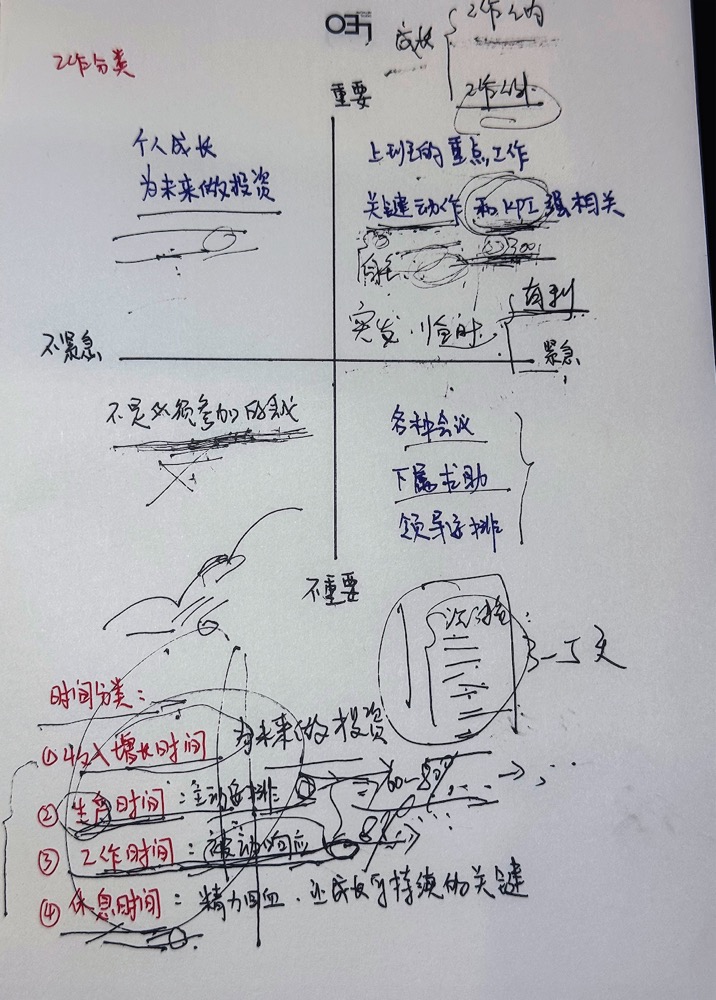 LEO
成长
工作以内
工作以外
工作分类
重要
个人成长
为未来做投资
上班的重点工作
关键动作 和KPI强相关
突发 临时
有利
不紧急
紧急
不是必须参加的会议
各种会议
下属求助
领导安排
不重要
3-5天
时间分类:
①收入增长时间 为未来做投资
②生产时间:主动安排 60-80%
③工作时间:被动响应
④休息时间:精力回血、还成长可持续的关键